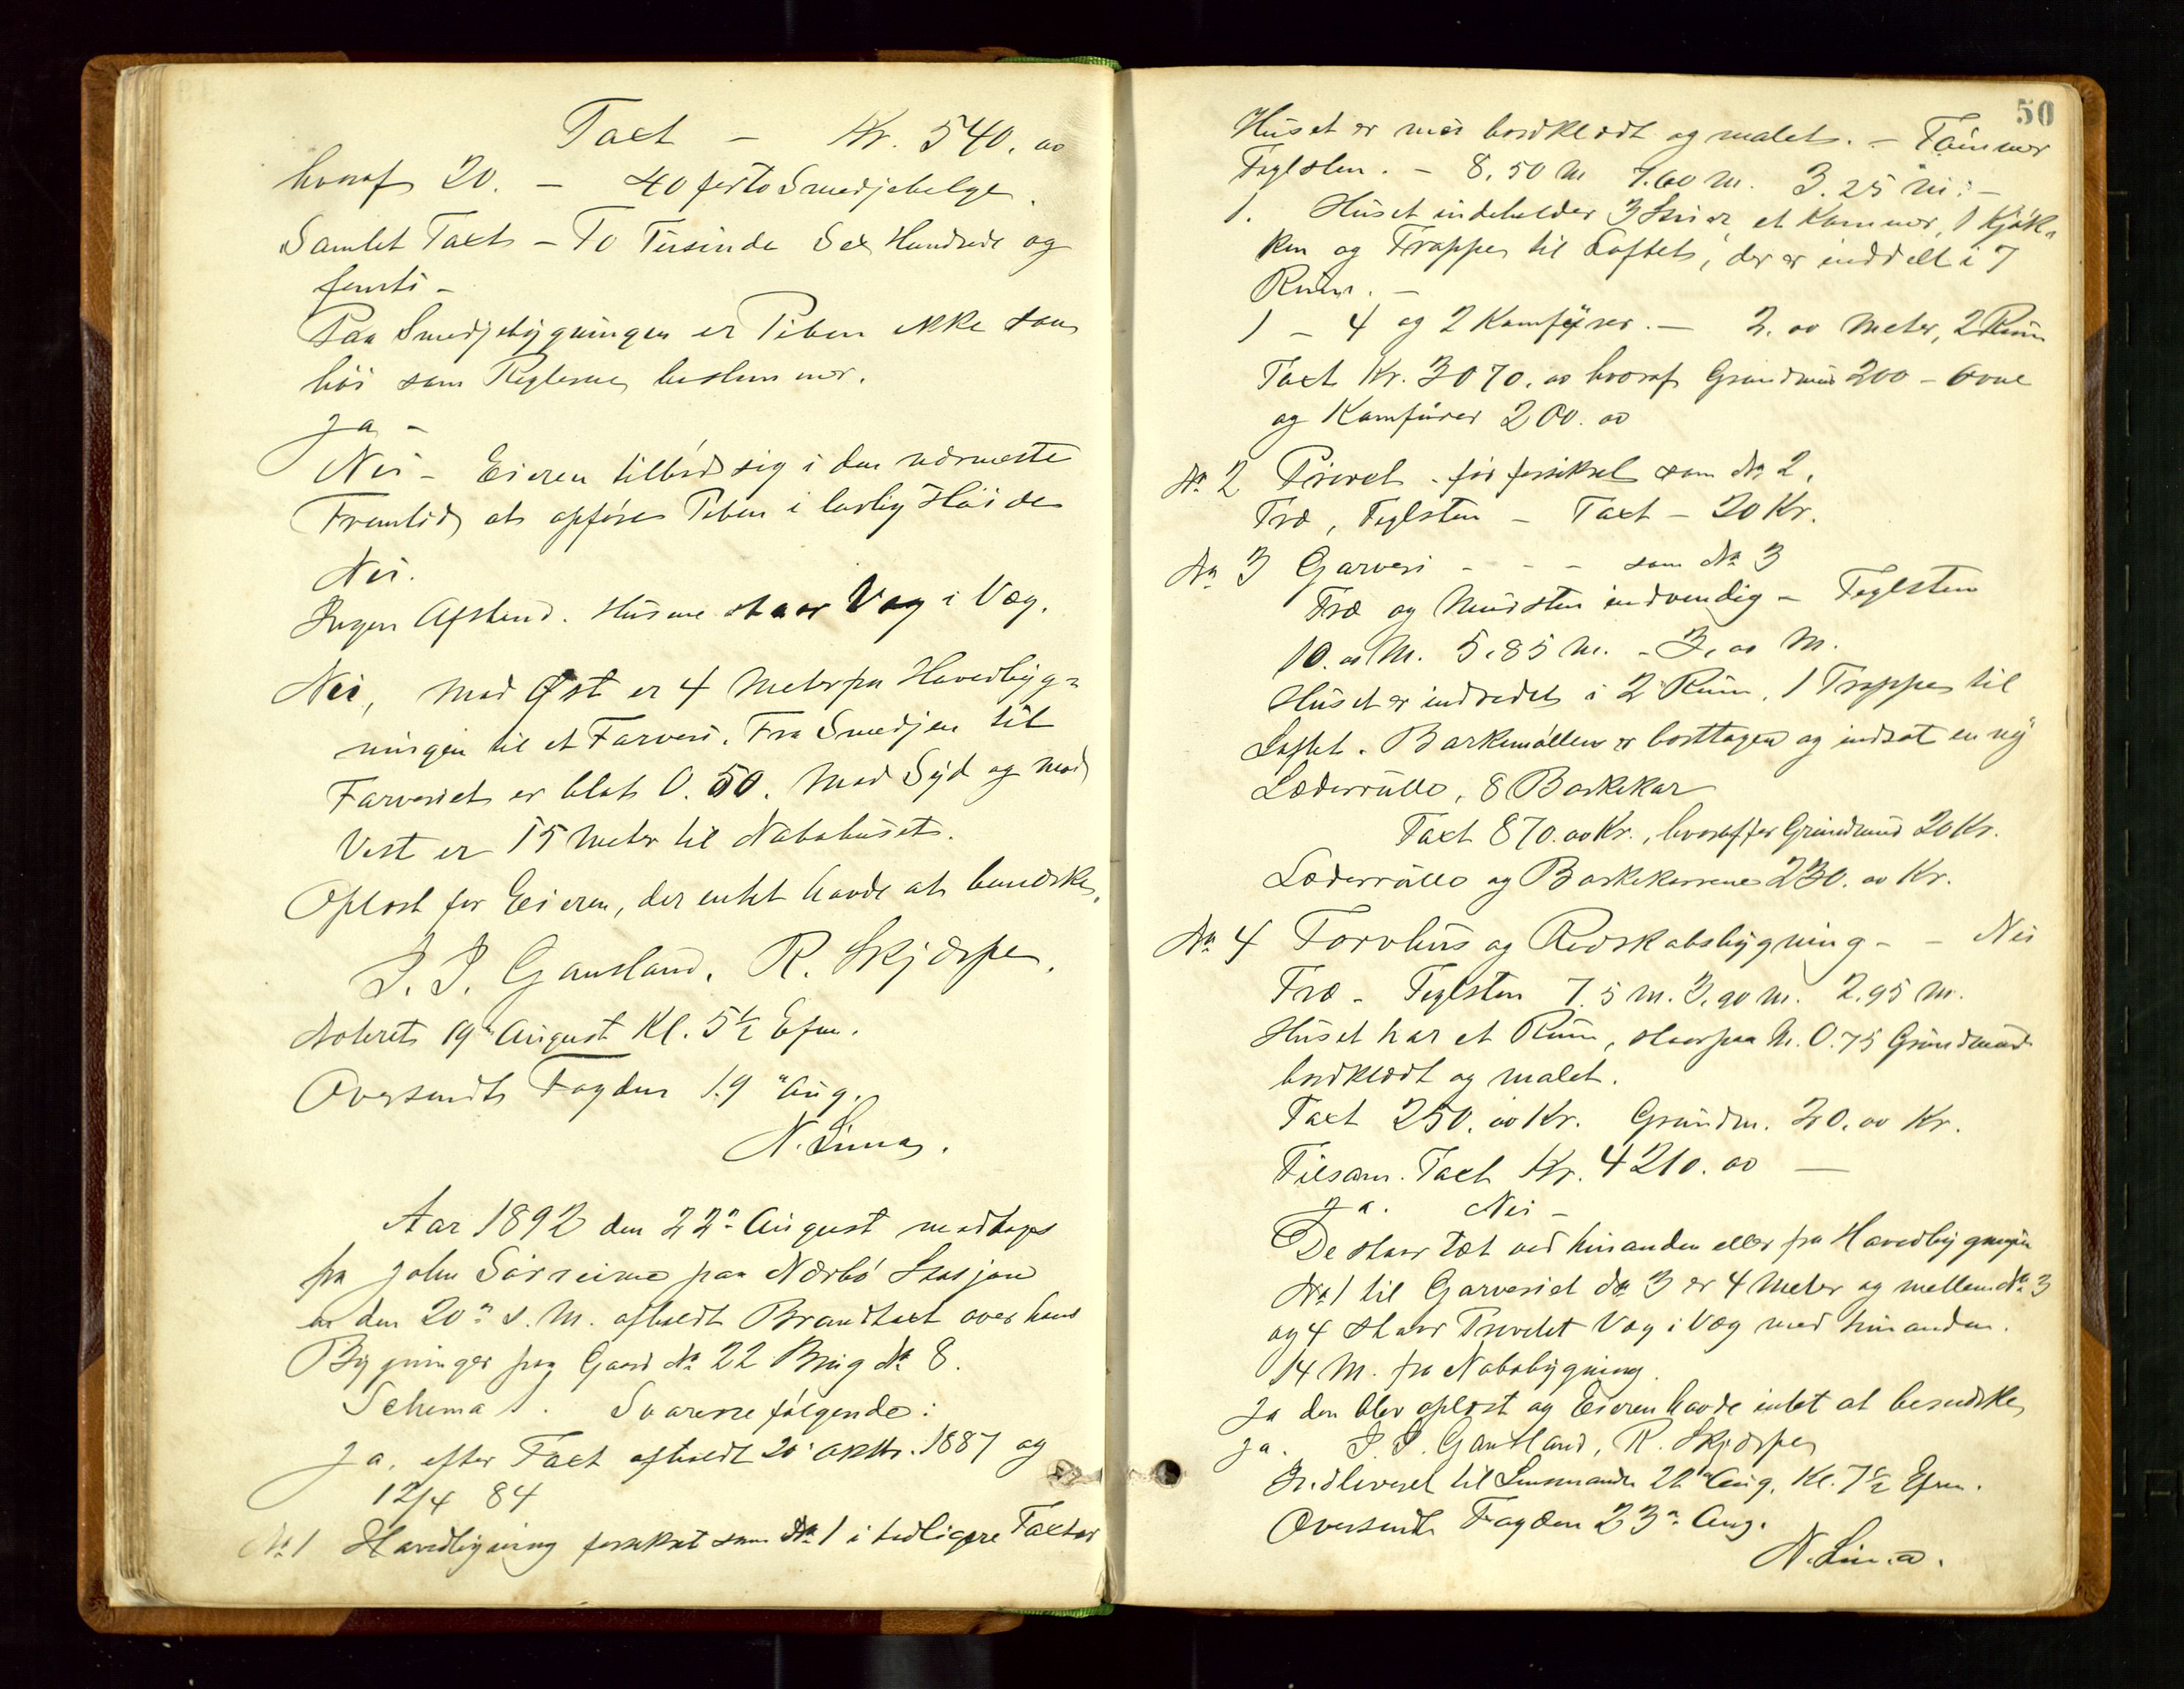 Taxt — Kr. 540. oo
hvoraf 20. — 40 for to Smedjebelge.
Samlet Taxt — To Tusinde Sex Hundrede og
femti —
Paa Smedjebygningen er Piben ikke saa
höi som Reglerne bestemmer.
Ja —
Nei — Eieren tilbød sig i den nærmeste
Fremtid at opføre Piben i lovlig Höide
Nei.
Ingen Afstand. Husene staar Væg i Væg.
Nei, mod Øst er 4 Meter fra Hovedbyg-
ningen til et Farveri. Fra Smedjen til
Farveriet er blot 0.50. Mod Syd og mod
Vest er 15 Meter til Nabohuset.
Oplæst for Eieren, der intet havde at bemærke.
J. J. Gausland. R. Skjærpe.
Noteret 19" August Kl. 5 1/2 Efm.
Oversendt Fogden 19" Aug.
N. Lima.
Aar 1892 den 22" August modtoges
fra John Sörreime paa Nærbö Stasjon
en den 20" d. M. afholdt Brandtaxt over hans
Bygninger paa Gaard No 22 Brug No 8.
Schema 1. Svarene følgende:
Ja, efter Taxt afholdt 20" Oktbr. 1887 og
12/4 84
No 1 Hovedbygning forsikret som No 1 i tidligere Taxter
50
Huset er nu bordklædt og malet. — Tømmer
Teglsten. — 8,50 M 7.60 M. 3.25 M. —
1. Huset indeholder 3 Stuer, et Kammer, 1 Kjök-
ken og Trappe til Loftet, der er inddelt i 7
Rum. —
1 — 4 og 2 Komfyrer. — 2. oo Meter, 2 Rum
Taxt Kr. 3070. oo hvoraf Grundmur 200 — Ovne
og Komfurer 200. oo
No 2 Privet för forsikret som No 2,
Træ, Teglsten — Taxt — 20 Kr.
No 3 Garveri - - - som No 3
Træ og Mursten indvendig — Teglsten
10. oo M. 5,85 M. - 3, oo M.
Huset er indredet i 2 Rum, 1 Trappe til
Loftet. Barkemöllen er borttagen og indsat en ny
Læderrulle, 8 Barkekar
Taxt 870. oo Kr., hvoraf for Grundmur 20 Kr.
Læderrulle og Barkekarrene 230. oo Kr.
No 4 Torvhus og Redskabsbygning - - Nei
Træ - Teglsten 7.5 m. 3,90 m. 2,95 m.
Huset har et Rum, staar paa M. 0.75 Grundmur
bordklædt og malet.
Taxt 250. oo Kr. Grundm. 20. oo Kr.
Tilsam. Taxt Kr. 4210. oo —
Ja. Nei —
De staar tæt ved hinanden eller fra Hovedbygningen
No 1 til Garveriet No 3 er 4 Meter og mellem No 3
og 4 staar Privetet Væg i Væg med hinanden.
14 M. fra Nabobygning.
Ja den blev oplæst og Eieren havde intet at bemærke
Ja. J. J. Gausland, R. Skjærpe
Indleveret til Lensmanden 22" Aug. Kl. 7 1/2 Efm.
Oversendt Fogden 23" Aug.
N. Lima.